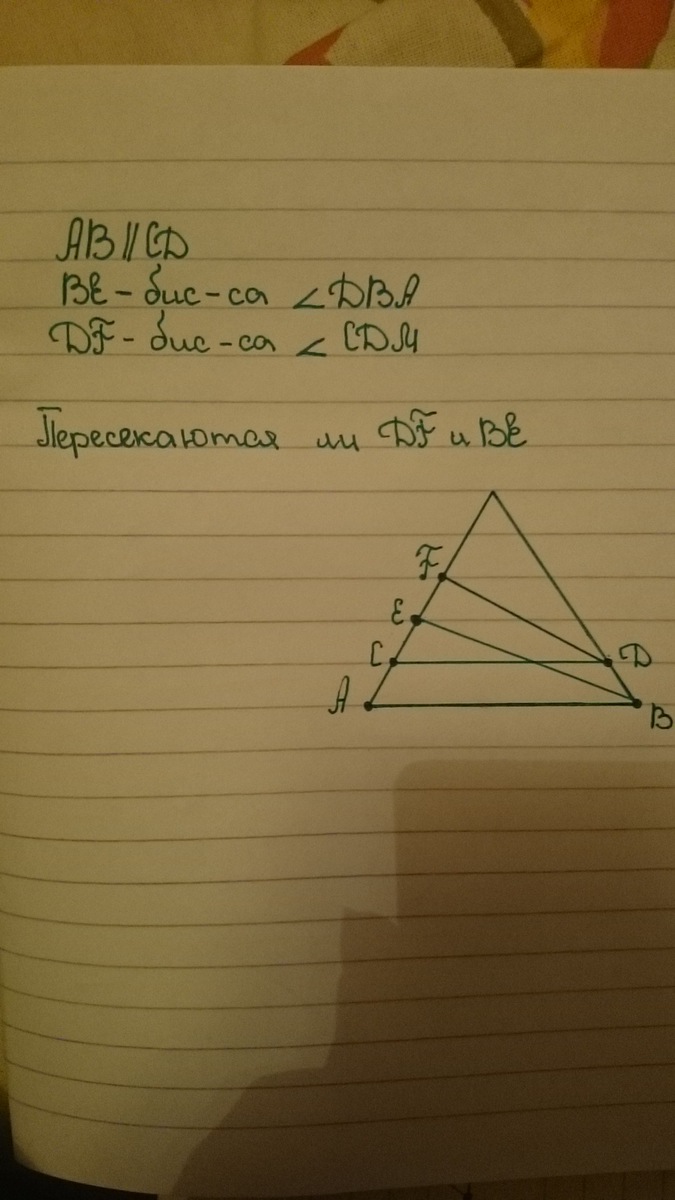 AB || CD
BE - бис-са ∠DBA
DF - бис-са ∠ CDM
Пересекаются ли DF и BE
F
E
C D
A B